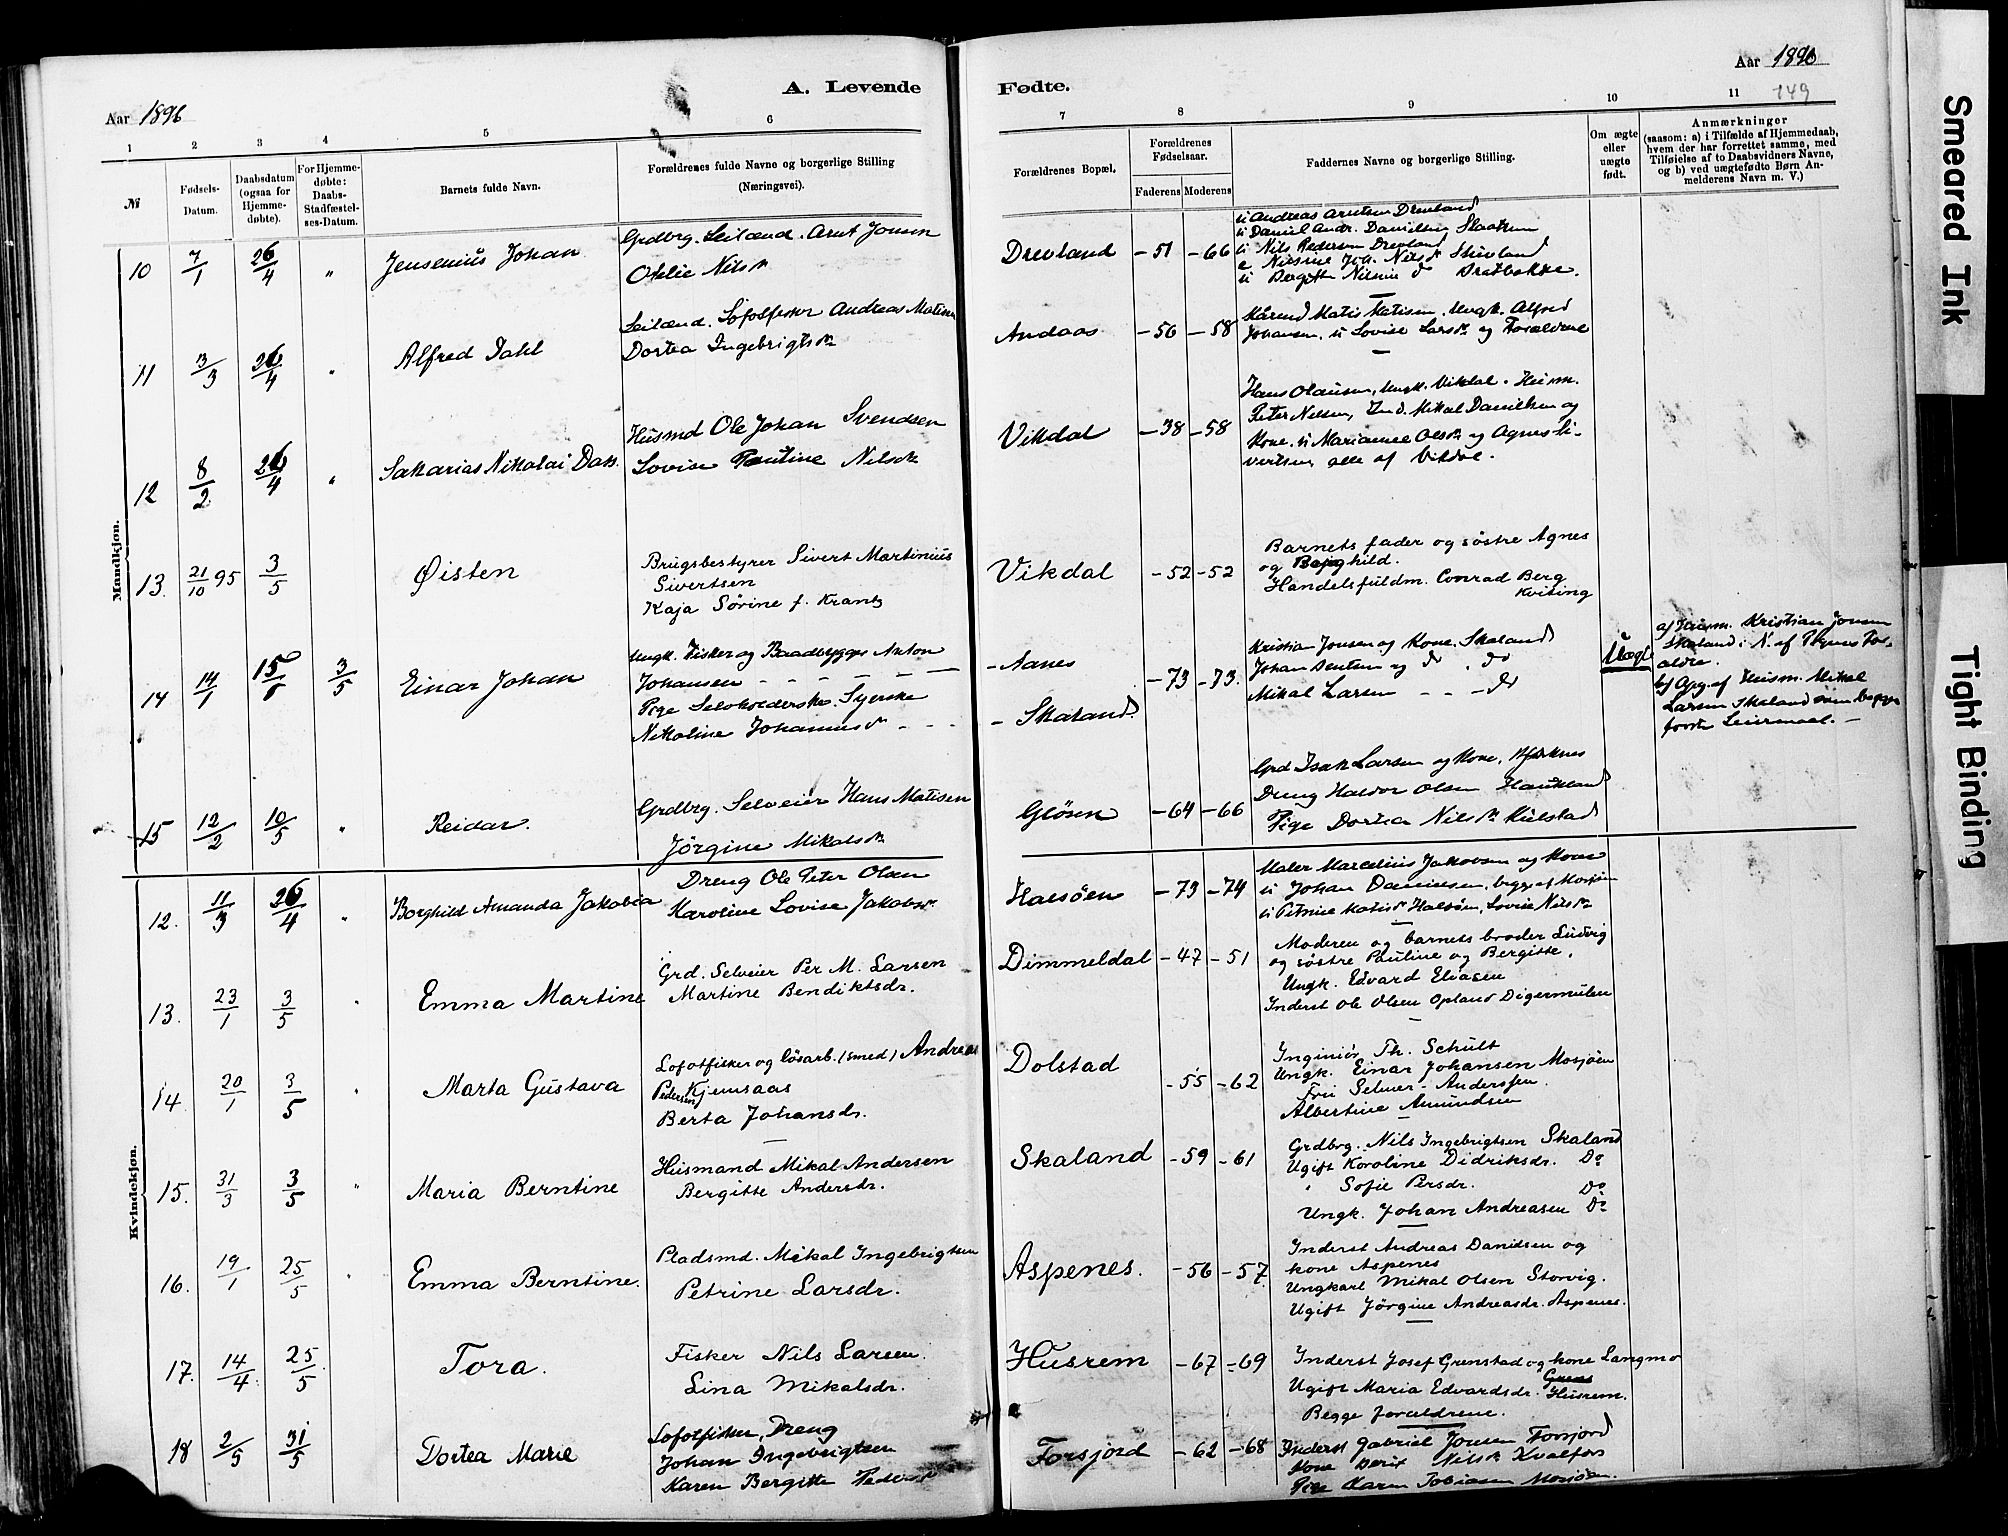 A. Levende
Aar 1896
1 2 3 4 5 6
№
Fødsels-Datum.
Daabsdatum (ogsaa for Hjemmedøbte).
For Hjemmedøbte: Daabs-Stadfæstelses-Datum.
Barnets fulde Navn.
Forældrenes fulde Navne og borgerlige Stilling
(Næringsvei).
Mandkjøn.
10 7/1 26/4 " Jensenius Johan
Grdbrg. Leilænd. Arnt Jonsen
Otelie Nilsdr
11 3/3 26/4 " Alfred Dahl
Leilænd. Lofotfisker Andreas Matisen
Dortea Ingebrigtsdr
12 8/2 26/4 " Sakarias Nikolai
Husmd Ole Johan Svendsen
Lovise Pauline Nilsdr
13. 21/10 95 3/5 Øisten
Brugsbestyrer Sivert Martinius
Sivertsen
Kaja Sørine f. Krantz
14 14/1 15/ 3/5 Einar Johan
Ungk. Fisker og Baadbygger Anton
Johansen
Pige Selvholderske. Syerske
Nikoline Johannesdr
15 12/2 10/5 " Reidar.
Grdbrg. Selveier Hans Matisen
Jörgine Mikalsdr
Kvindekjøn.
12. 11/3 26/4 " Borghild Amanda Jakobia
Dreng Ole Peter Olsen
Karoline Lovise Jakobsdr.
13. 23/1 3/5 " Emma Martine
Grd. Selveier Per M. Larsen
Martine Bendiktsdr.
14. 20/1 3/5 " Marta Gustava
Lofotfisker og lösarb. (smed) Andreas
Pedersen Kjemsaas
Berta Johansdr.
15. 31/3 3/5 " Maria Berntine
Husmand Mikal Andersen
Bergitte Andersdr.
16. 19/1 25/5 " Emma Berntine.
Pladsmd. Mikal Ingebrigtsen
Petrine Larsdr.
17. 14/4 25/5 Tora.
Fisker Nils Larsen.
Lina Mikalsdr.
18 2/5 31/5 Dortea Marie
Lofotfisker, Dreng
Johan Ingebrigtsen
Karen Bergitte Pedersdr
Fødte.
Aar 1896
149
7 8 9 10 11
Forældrenes Bopæl.
Forældrenes Fødselsaar.
Faderens Moderens
Faddernes Navne og borgerlige Stilling.
Om ægte eller uægte født.
Anmærkninger
(saasom: a) i Tilfælde af Hjemmedaab, hvem der har forrettet samme, med Tilføielse af to Daabsvidners Navne, og b) ved uægtefødte Børn Anmelderens Navn m. V.)
Drevland -51 -66
u Andreas Arntsen Drevland
u Daniel Andr. Danielsen
u Nils Pedersen Drevland
Andaas -56 -58
Johansen, u Lovise Larsdr og Forældrene
Vikdal -38 -58
Hans Olausen, Ungk. Vikdal. Husm.
Peter Nilsen, Ind. Mikal Danielsen og
Kone. u Marianne Olsdr og Agnes Si-
vertsen, alle af Vikdal.
Vikdal -52 -52
Barnets fader og söstre Agnes
og Borghild.
Handelsfuldm. Conrad Berg
Kvitting
- Aanes
- Skaland.
-73 -73.
Kristian Jonsen og Kone. Skaland
Johan og do . do
Mikal Larsen - - do
Uægte
a) Husm. Kristian Jonsen
Skaland i N. af Pigens For-
ældre.
b) Opg. af Husm. Mikal
Larsen Skaland som begges
første Leiermaal. -
Glösen -64 -66
Grd Isak Larsen og Kone,
Dreng Haldor Olsen Haukland
Pige Dortea Nilsdr Kulstad
Halsöen -73 -74
Maler Marcelius Jakobsen og Kone
u Johan Danielsen, begge af Mosjøen
u Petrine Matisdr Halsöen, Lovise Nilsdr
Dimmeldal -47 -51
Moderen og barnets broder Ludvig
og söstre Pauline og Bergitte.
Ungk. Edvard Eliasen
Inderst Ole Olsen Opland Digermulen
Dolstad -55 -62
Inginiör Th. Schult
Ungk. Einar Johansen Mosjöen
Fru Selmer-Anderssen.
Albertine Amundsen
Skaland -59 -61
Grdbrg. Nils Ingebrigtsen Skaland
Ugift Karoline Didriksdr. Do
" Sofie Persdr. Do
Ungk. Johan Andreasen Do
Aspenes. -56 -57
Inderst Andreas Danidsen og
kone Aspenes
Ungkarl Mikal Olsen Storvig.
Ugift Jörgine Andreasdr. Aspenes.
Husrem -67 -69
Inderst Josef Grenstad og kone Langmo
Ugift Maria Edvardsdr. Husrem.
Begge forældrene.
Forsjord -62 -68
Inderst Gabriel Jonsen Forsjord
Kone Berit Nilsdr Kvalfors
Pige Karen Tobiasen Mosjöen.
Smeared Ink
Tight Binding